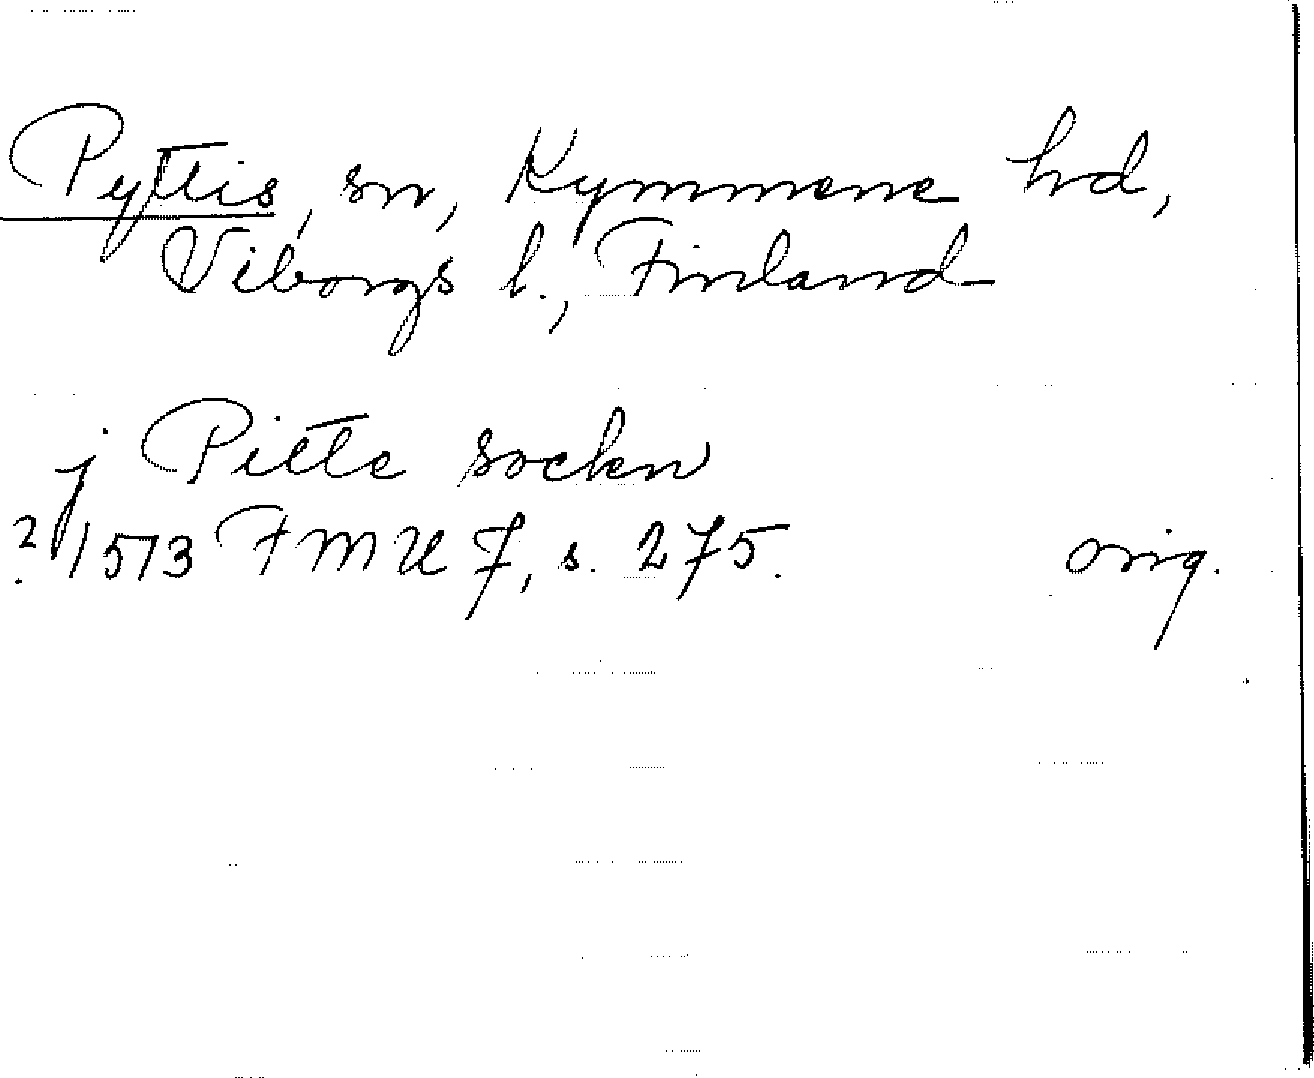 Pyttis, sn, Kymmene hd,
Viborgs l., Finland
j Pitte sockn
2/1 1513 FMU 7, s. 275. orig.